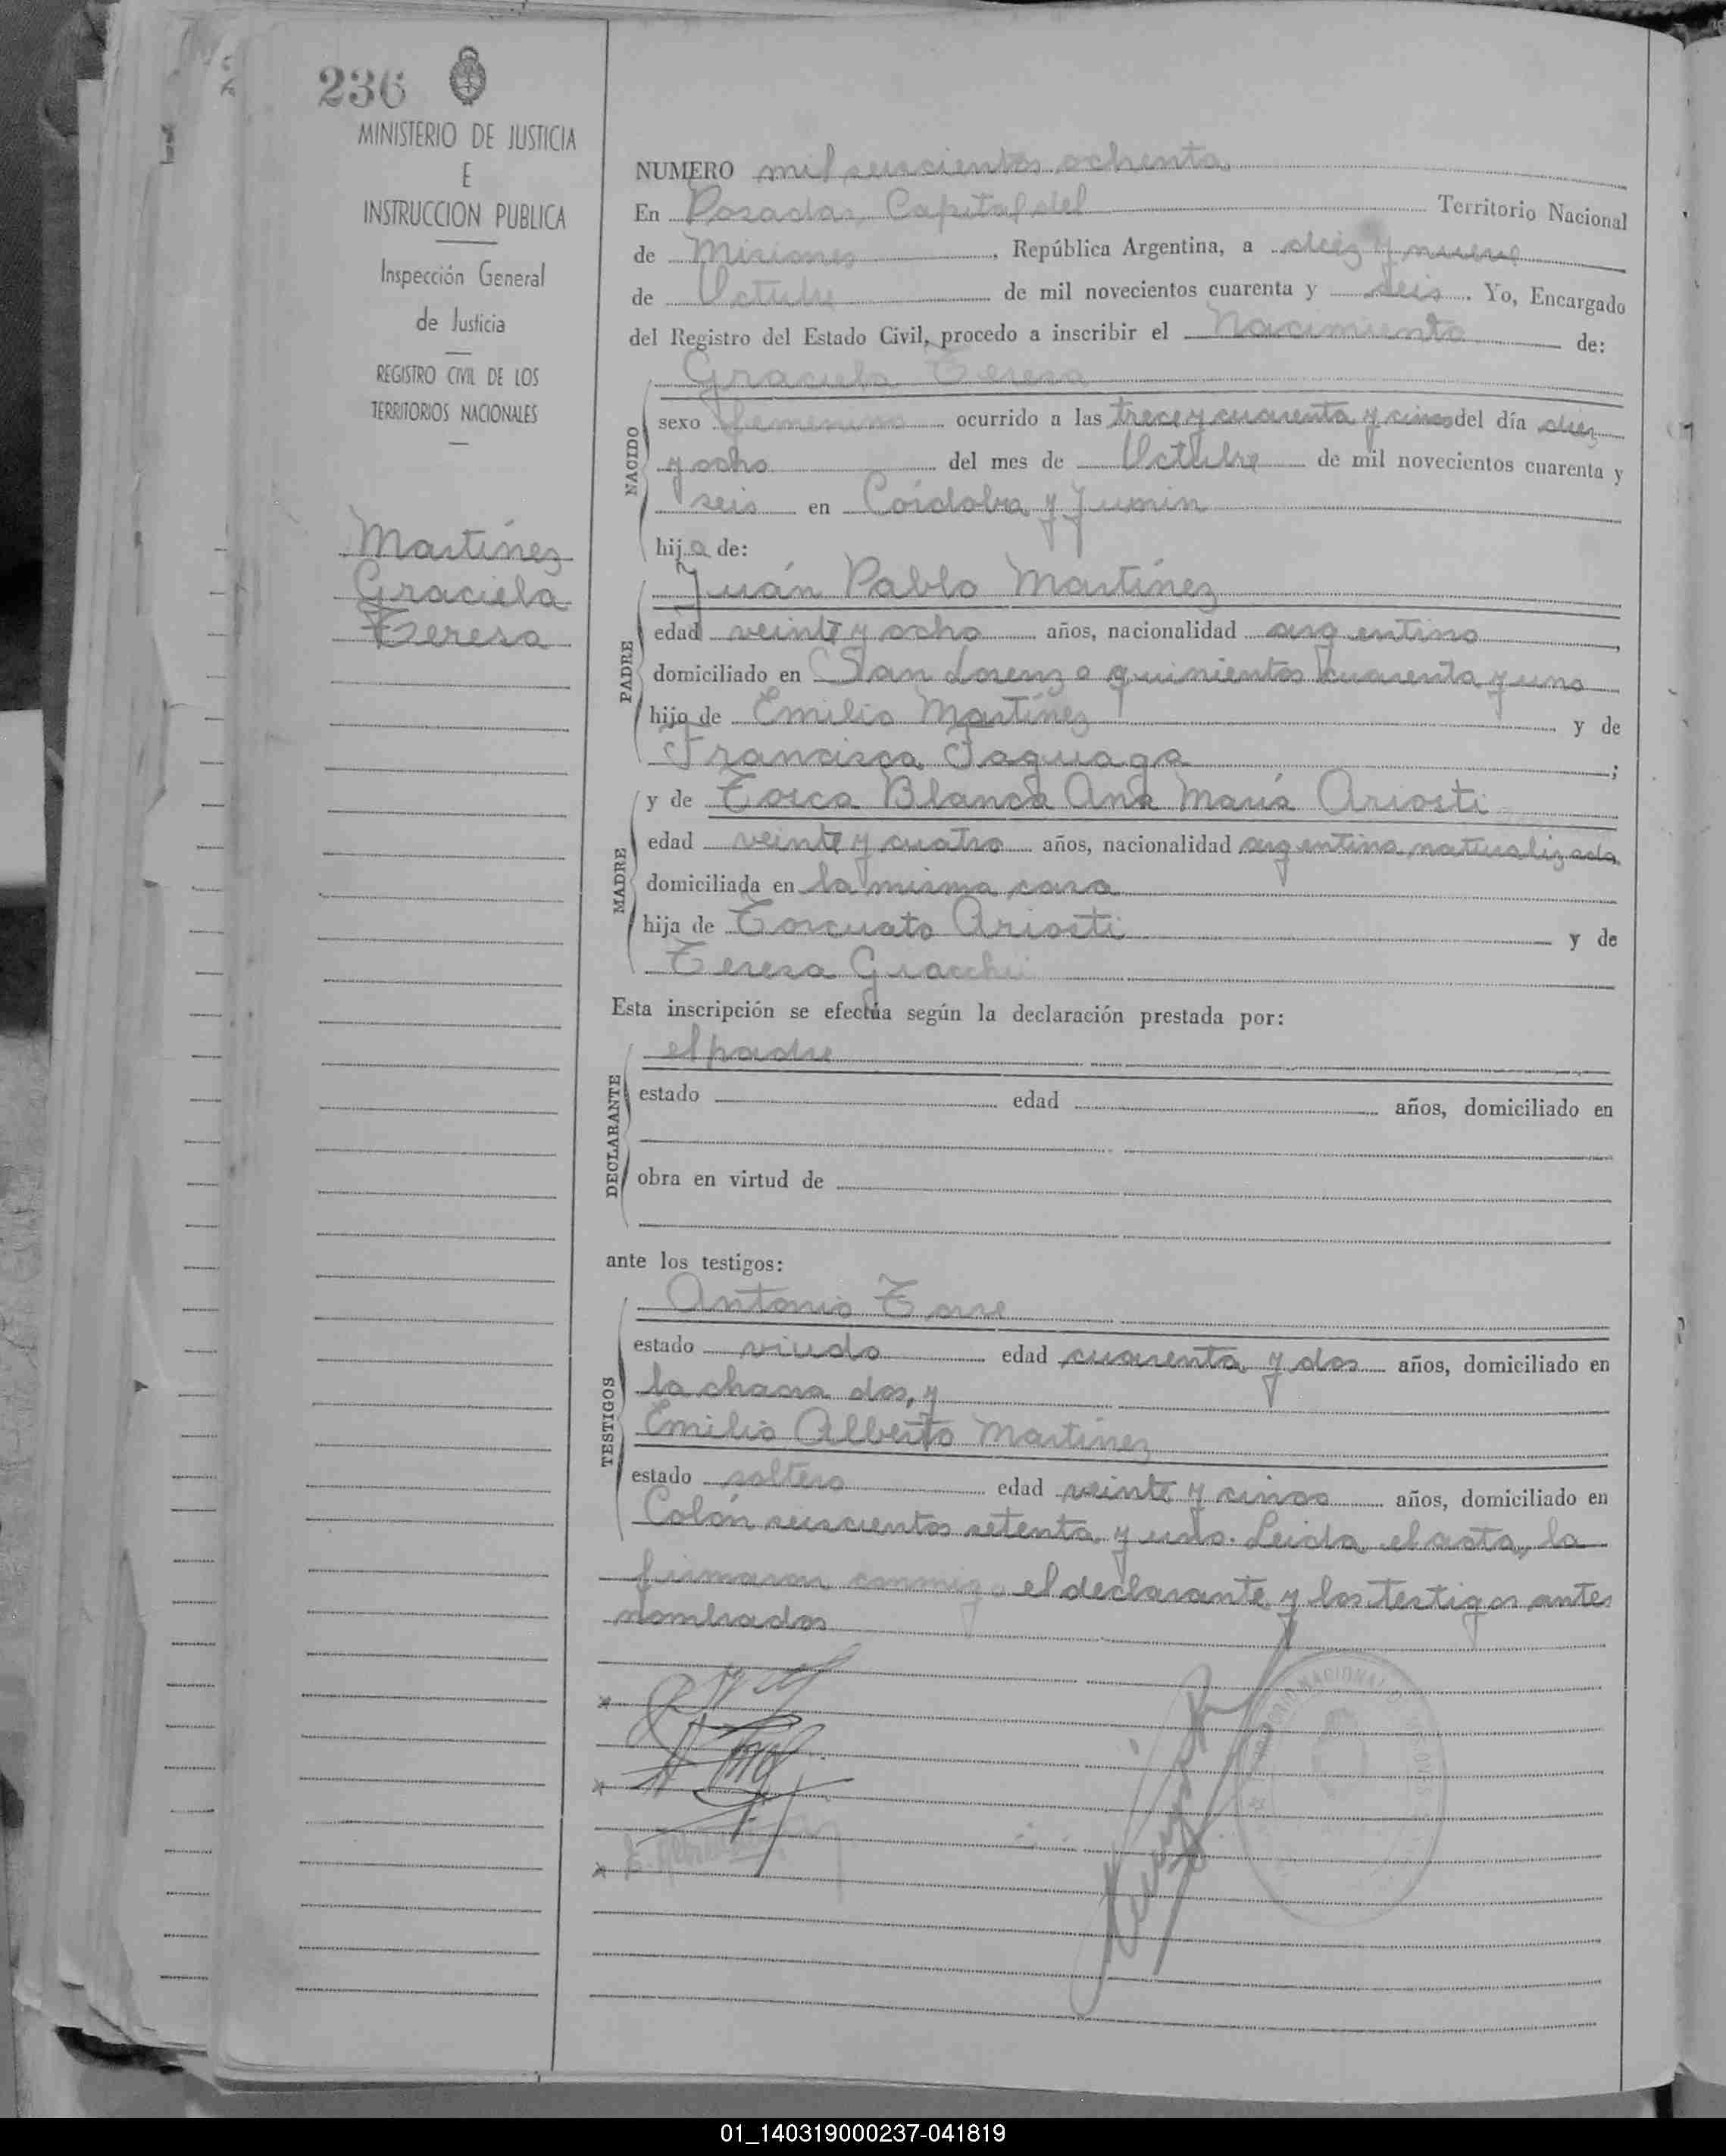 236
MINISTERIO DE JUSTICIA
E
INSTRUCCION PUBLICA
Inspección General
de Justicia
REGISTRO CIVIL DE LOS
TERRITORIOS NACIONALES
Martínez
Graciela
Teresa
NUMERO mil seiscientos ochenta
En Posadas, Capital del Territorio Nacional
de Misiones, República Argentina, a diez y nueve
de Octubre de mil novecientos cuarenta y seis. Yo, Encargado
del Registro del Estado Civil, procedo a inscribir el Nacimiento de:
Graciela Teresa
NACIDO
sexo femenino ocurrido a las trece y cuarenta y cinco del día diez
y ocho del mes de Octubre de mil novecientos cuarenta y
seis en Córdoba y Junin
hija de:
Juán Pablo Martínez
PADRE
edad veinte y ocho años, nacionalidad argentino,
domiciliado en San Lorenzo quinientos cuarenta y uno
hijo de Emilio Martínez y de
Francisca Jaguaga;
MADRE
y de Tosca Blanca Ana María Ariosti
edad veinte y cuatro años, nacionalidad argentina naturalizada
domiciliada en la misma casa
hija de Torcuato Ariosti y de
Teresa Giacchi
Esta inscripción se efectúa según la declaración prestada por:
el padre
DECLARANTE
estado edad años, domiciliado en
obra en virtud de
ante los testigos:
Antonio Torre
TESTIGOS
estado viudo edad cuarenta y dos años, domiciliado en
la chacra dos, y
Emilio Alberto Martínez
estado soltero edad veinte y cinco años, domiciliado en
Colón seiscientos setenta y uno. Leida el acta, la
firmaron conmigo el declarante y los testigos antes
nombrados
NACIONAL
01_140319000237-041819